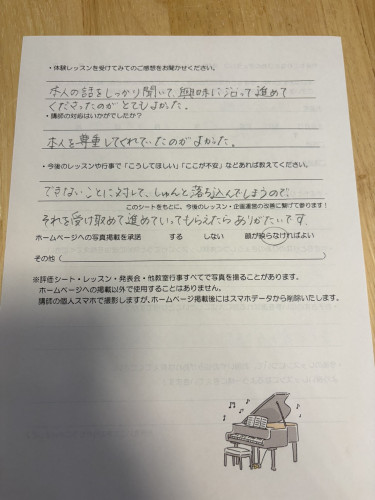 ・体験レッスンを受けてみてのご感想をお聞かせください。
本人の話をしっかり聞いて、興味に沿って進めて
くださったのがとてもよかった。
・講師の対応はいかがでしたか?
本人を尊重してくれていたのがよかった。
・今後のレッスンや行事で「こうしてほしい」「ここが不安」などあれば教えてください。
できないことに対して、しゅんと落ち込んでしまうので
このシートをもとに、今後のレッスン・企画運営の改善に繋げて参ります!
それを受け取めて進めていってもらえたらありがたいです
ホームページへの写真掲載を承諾 する しない 顔が映らなければよい
その他(
※評価シート・レッスン・発表会・他教室行事すべてで写真を撮ることがあります。
ホームページへの掲載以外で使用することはありません。
講師の個人スマホで撮影しますが、ホームページ掲載後にはスマホデータから削除いたします。